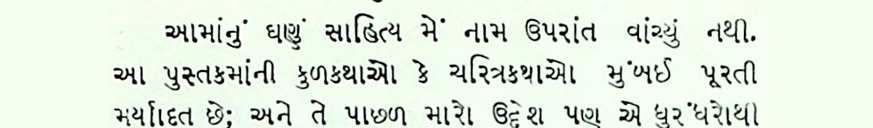 આમાંનું ઘણું સાહિત્ય મેં નામ ઉપરાંત વાંચ્યું નથી.
આ પુસ્તકમાંની કુળકથાઓ કે ચરિત્રકથાઓ મુંબઈ પૂરતી
મર્યાદિત છે; અને તે પાછળ મારો ઉદ્દેશ પણ એ ધુરંધરોથી